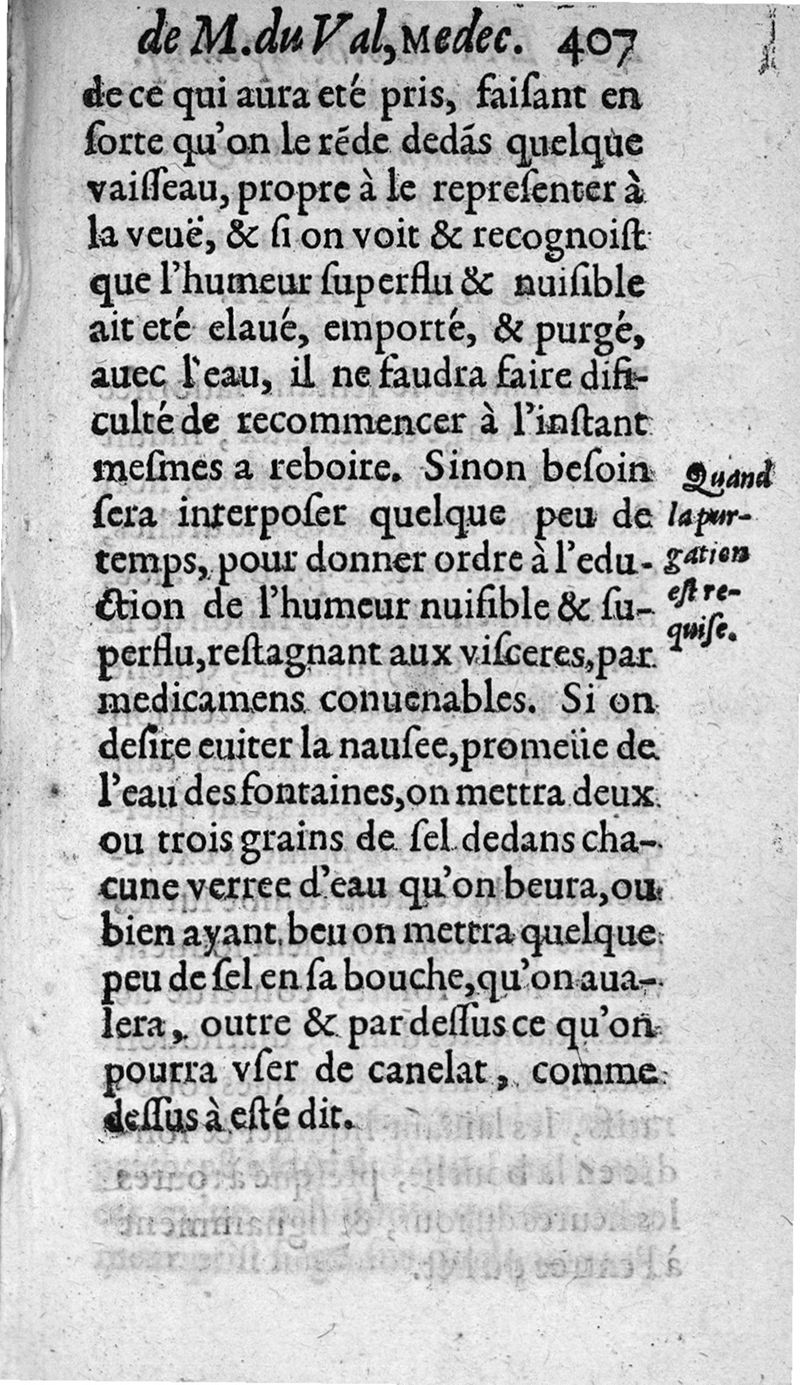 de M. du Val, Medec. 407
de ce qui aura eté pris, faiſant en
ſorte qu'on le rẽde dedãs quelque
vaiſſeau, propre à le repreſenter à
la veuë, & ſi on voit & recognoiſt
que l'humeur ſuperflu & nuiſible
ait eté elaué, emporté, & purgé,
auec l'eau, il ne faudra faire difi-
culté de recommencer à l'inſtant
meſmes a reboire. Sinon beſoin
ſera interpoſer quelque peu de
temps, pour donner ordre à l'edu-
ction de l'humeur nuiſible & ſu-
perflu, reſtagnant aux viſceres, par
medicamens conuenables. Si on
deſire euiter la nauſee, promeüe de
l'eau des fontaines, on mettra deux
ou trois grains de ſel dedans cha-
cune verree d'eau qu'on beura, ou
bien ayant beu on mettra quelque
peu de ſel en ſa bouche, qu'on aua-
lera, outre & par deſſus ce qu'on
pourra vſer de canelat, comme
deſſus à eſté dit.
Quand
la pur-
gation
eſt re-
quiſe.